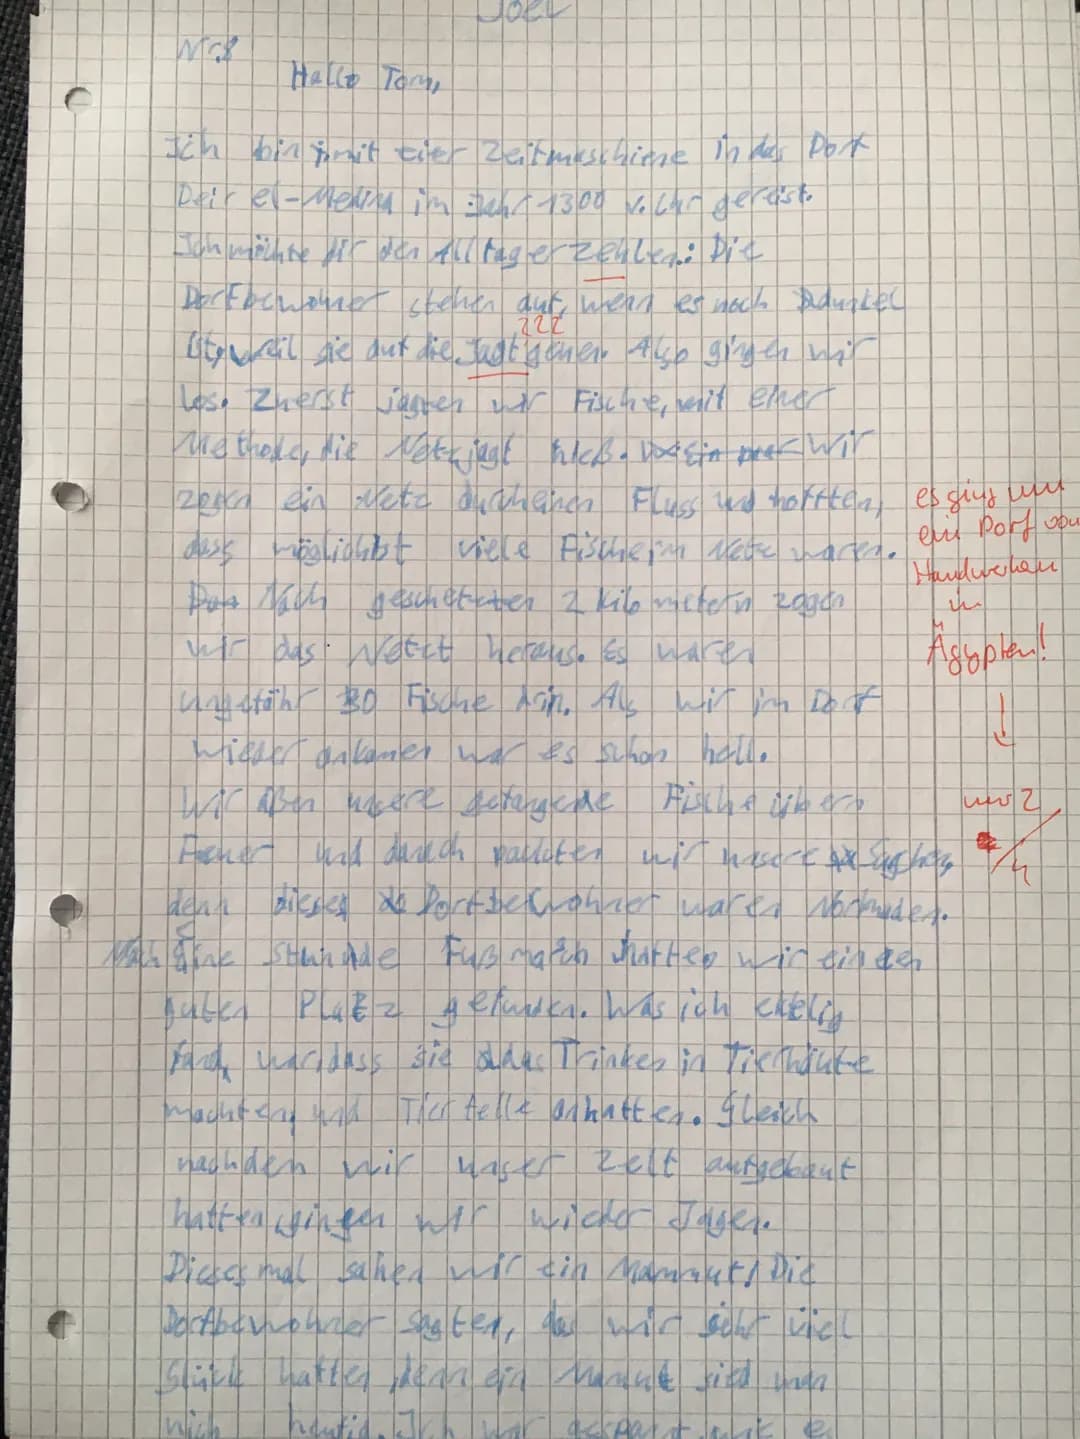 Joel
Nr.8
Hallo Tom,
Ich bin mit eier Zeitmaschiene in das Dorf
Deir el-Medina im Jahr 1300 v. Chr gereist.
Ich möchte dir den Alltag erzehlen: Die
Dorfbewohner stehen auf, wenn es noch dunkel
ist, weil sie auf die Jagt gehen. Also gingen wir
???
los. Zuerst jagten wir Fische, mit einer
Methode, die Netzjagt hieß. Wir
zogen ein Netz durch einen Fluss und hofften,
dass möglichst viele Fische im Netz waren.
Nach geschetzten 2 Kilometern zogen
wir das Netzt heraus. Es waren
ungefähr 30 Fische drin. Als wir im Dorf
wieder ankamen war es schon hell.
Wir aßen unsere gefangende Fische übern
Feuer und danach packten wir unsere Sachen,
denn dieses Dorfbewohner waren Normaden.
Nach eine Stunde Fußmarch hatten wir einen
guten Platz gefunden. Was ich eklig
fand, war, dass sie das Trinken in Tierhäute
machten, und Tierfelle anhatten. Gleich
nachden wir unser Zelt aufgebaut
hatten, gingen wir wieder Jagen.
Dieses mal sahen wir ein Mammut! Die
Dorfbewohner sagten, das wir sehr viel
Glück hatten, denn ein Mammut sied man
nich heufig. Ich war gespannt, wie es
es ging um
ein Dorf von
Handwerkern
in
Ägypten!
nur 2
/4